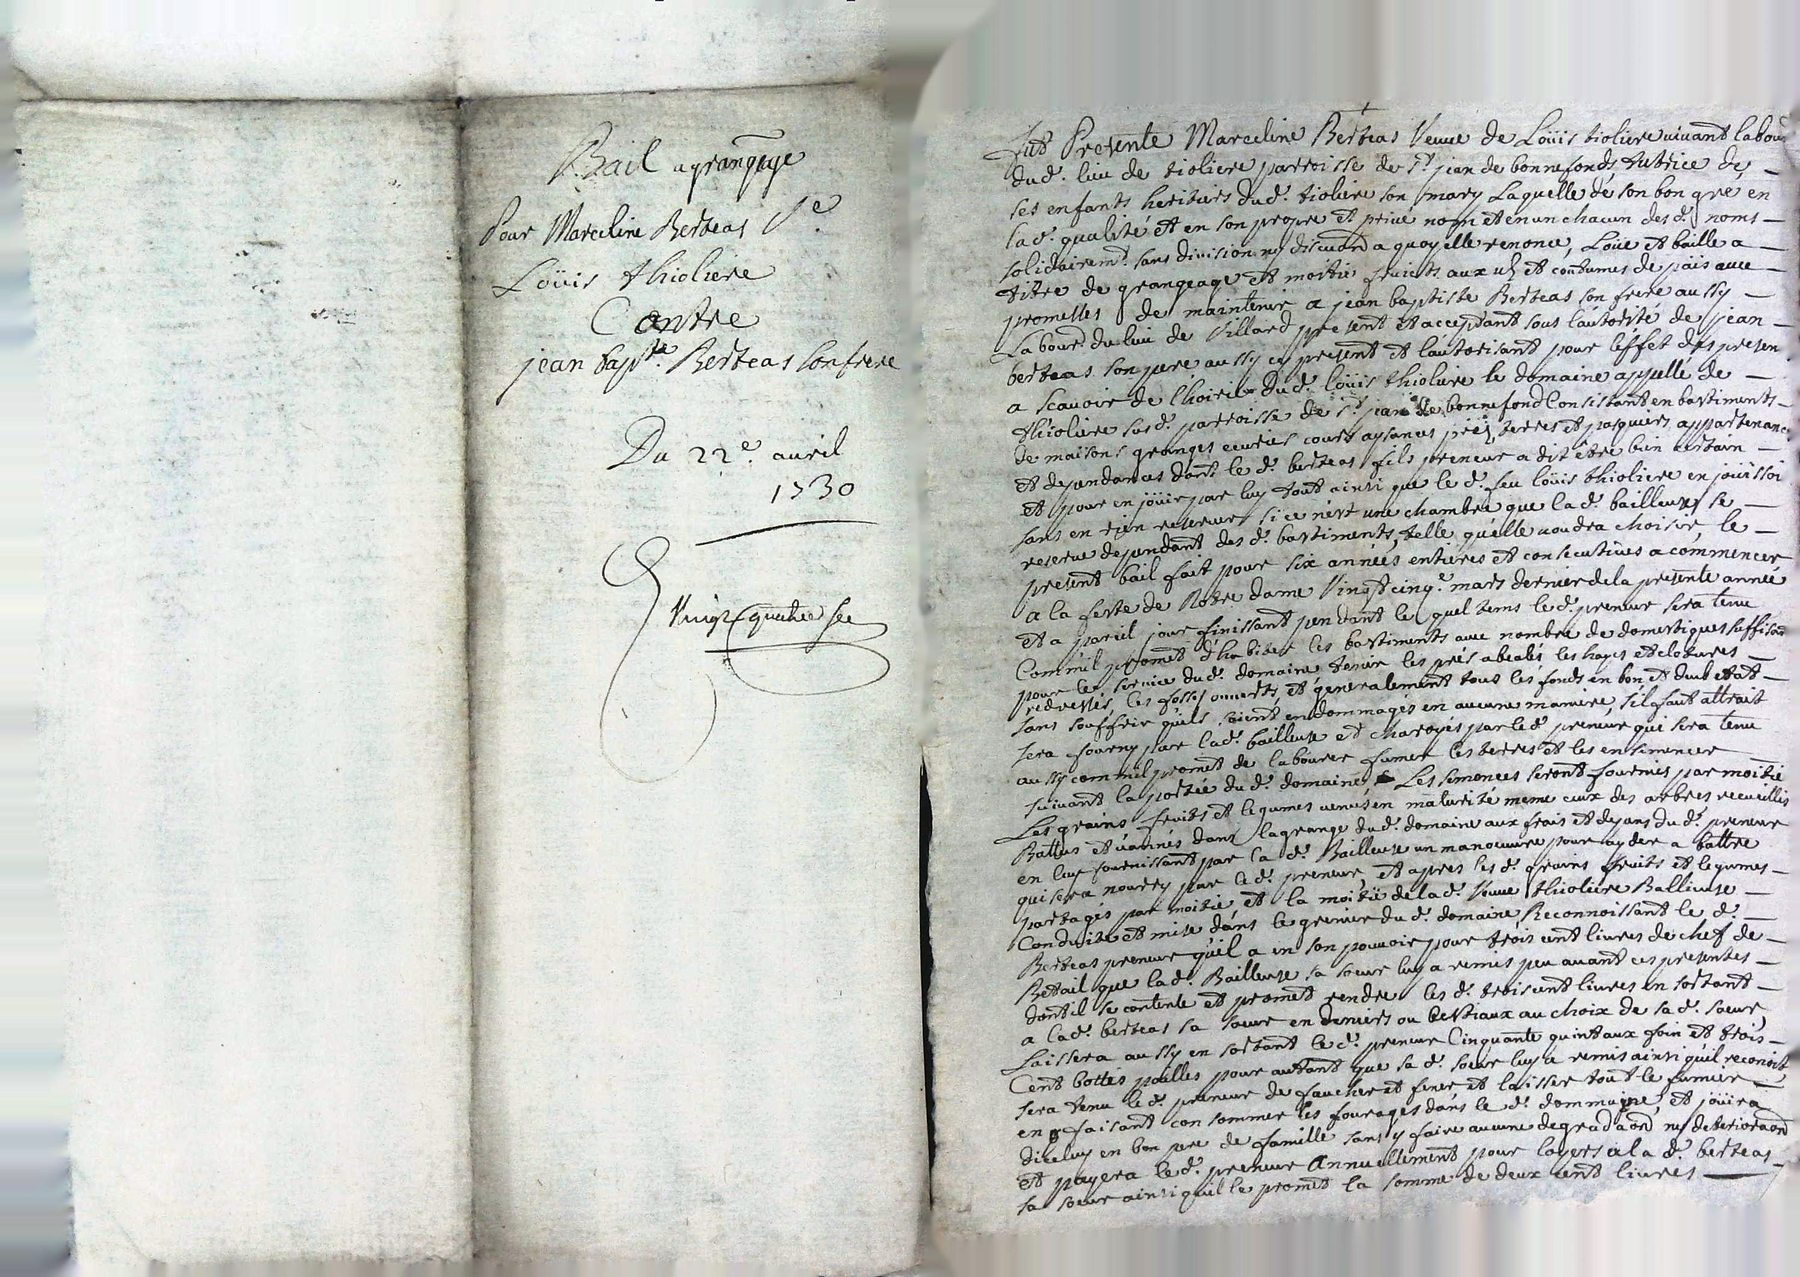 Bail agrangege
Pour Marceline Berteas Ve.
Loüis thioliere
Contre
jean bapte. Berteas son frere
Du 22e. auril
1730
Vingt quatre
fut Presente Marceline Berteas Veuue de Loüis tioliere uiuant labour
dud. lieu de tioliere parroisse de St. jean de bonnefonds tutrice de
ses enfants heritiers dud. tioliere son mary Laquelle de son bon gre en
lad. qualité et en son propre et priué nom et en un chacun des d. noms
solidairemt. sans diuision ny discuon. a quoy elle renonce, Loüe et baille a
titre de grangeage et moitie fruicts aux us et coutumes de païs auec
promesses de maintenir a jean baptiste Berteas son frere aussy
Labour. du lieu de Villard present et acceptant sous l'autorité de jean
berteas son pere aussy cy present et l'autorisant pour l'effet des presen
a scauoir de l'hoirie dud. loüis thioliere le domaine appellé de
thioliere susd. parroisse de St. jean de bonnefond Consistant en bastiments
de maisons granges ecuries cours aysances prez, terres et pasquiers appartenance
et dependances dont le d. berteas fils preneur a dit être bien certain
et pour en joüir par luy tout ainsi que le d. feu loüis thioliere en joüissoi
sans en rien reseruer si ce n'est une chambre que lad. bailleuse se
reserue dependant des d. bastiments, telle quelle uoudra choisir, le
present bail fait pour six années entieres et consecutiues a commencer
a la feste de Notre dame Vingt cinq. mars dernier de la presente année
et a pareil jour finissant pendant le quel tems le d. preneur sera tenu
Comm'il promet d'habiter les bastiments auec nombre de domestiques suffisan
pour le seruice dud. domaine tenir les prés abealés les hayes et clotures
redressés, les fosses ouuerts et generalement tous les fonds en bon et deub etat
sans souffrir quils soient endommagés en aucune maniere, s'il faut attrait
sera fourny par lad. bailleuse et charoyés par le d. preneur qui sera tenu
aussy comm'il promet de labourer fumer les terres et les ensemencer
suiuant la portée dud. domaine Les semences seront fournies par moitie
Les grains fruits et legumes uenus en maturité meme ceux des arbres recueillis
Battus et uannés dans lagrange dud. domaine aux frais et depans du d. preneur
en luy fournissant par la d. Bailleuse un manoeuure pour ayder a battre
qui sera nourry par le d. preneur, et apres les d. grains fruits et legumes
partagés par moitie et la moitie de la d. Veuue thioliere Bailleuse
Conduite et mise dans le grenier du d. domaine Reconnoissant le d.
Berteas preneur qu'il a en son pouuoir pour trois cent liures de chef de
Betail que la d. Bailleuse sa soeur luy a remis peu auant ces presentes
dont il se contente et promet rendre les d. trois cent liures en sortant
a lad. berteas sa soeur en deniers ou bestiaux au choix de sa d. soeur
Laissera aussy en sortant le d. preneur Cinquante quintaux foin et trois
Cent bottes pailles pour autant que sa d. soeur luy a remis ainsi qu'il reconoit
sera tenu le d. preneur de faucher et fener et laisser tout le fumier
en faisant consommer les fourages dans le d. dommaine et joüira
diceluy en bon pere de famille sans y faire aucune degradaon ny deterioraon
et payera le d. preneur Annuellement pour layers a la d. berteas
sa soeur ainsi quil le promet la somme de deux cent liures